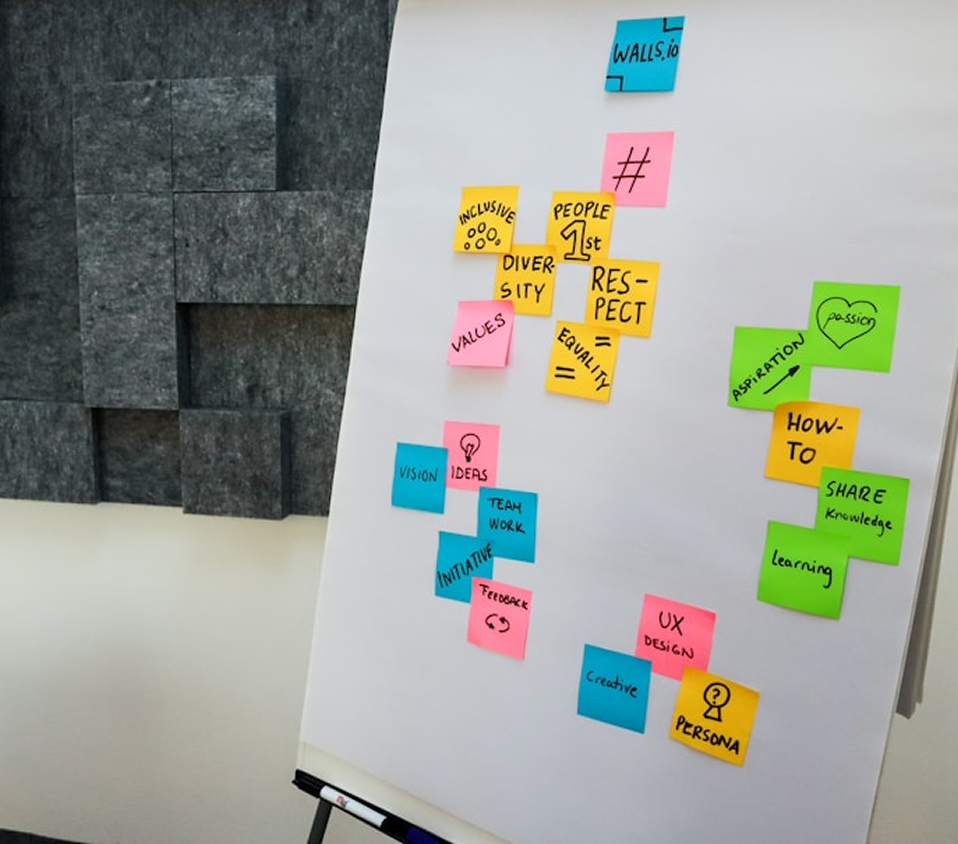 WALLS.io
#
INCLUSIVE
PEOPLE
1st
DIVER-
SITY
RES-
PECT
VALUES
=
EQUALITY
=
passion
ASPIRATION
HOW-
TO
SHARE
Knowledge
learning
IDEAS
VISION
TEAM
WORK
INITIATIVE
FEEDBACK
UX
DESIGN
Creative
?
PERSONA